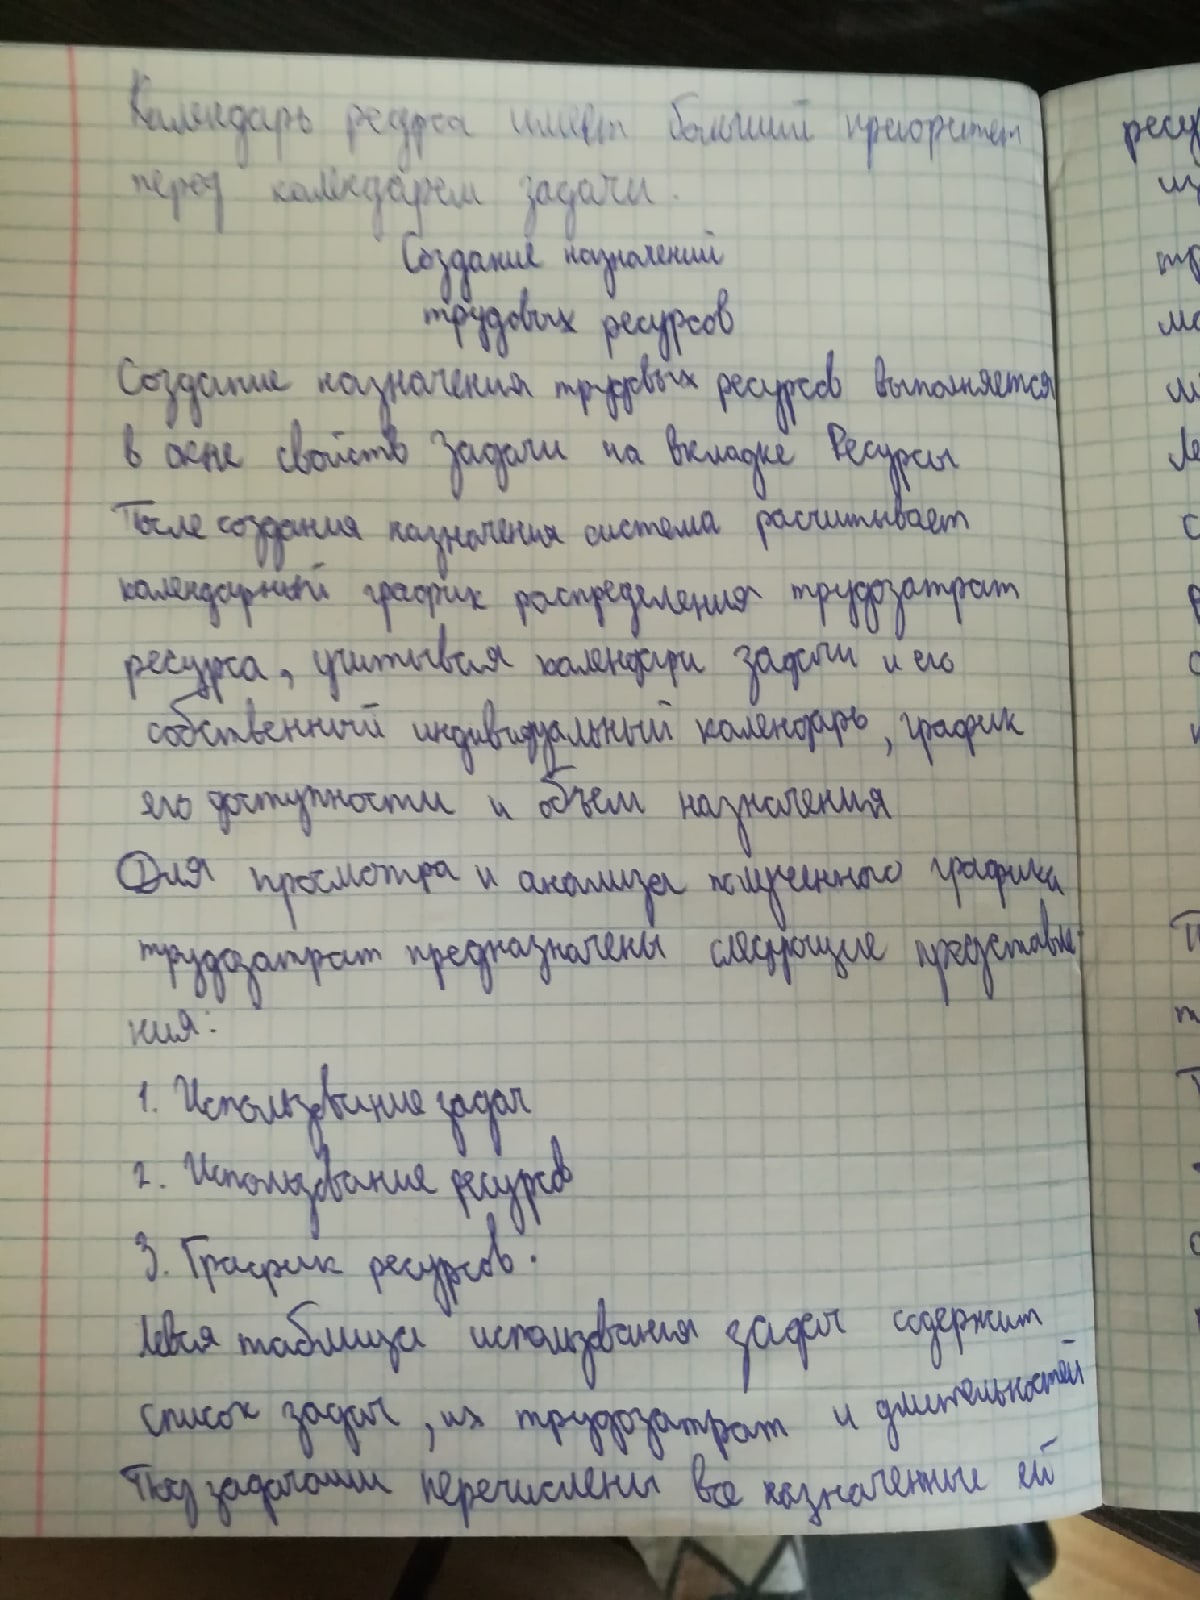 Календарь ресурса имеет больший приоритет
перед календарем задачи.
Создание назначений
трудовых ресурсов
Создание назначения трудовых ресурсов выполняется
в окне свойств Задачи на вкладке Ресурсы
После создания назначения система расчитывает
календарный график распределения трудозатрат
ресурса, учитывая календари задачи и его
собственный индивидуальный календарь, график
его доступности и объем назначения
Для просмотра и анализа полученного графика
трудозатрат предназначены следующие представле-
ния:
1. Использвание задач
2. Использвания ресурсов
3. График ресурсов.
Левая таблица использвания задач содержит
список задач, их трудозатрат и длительностей
Под задачами перечислены все назначенные ей
ресу